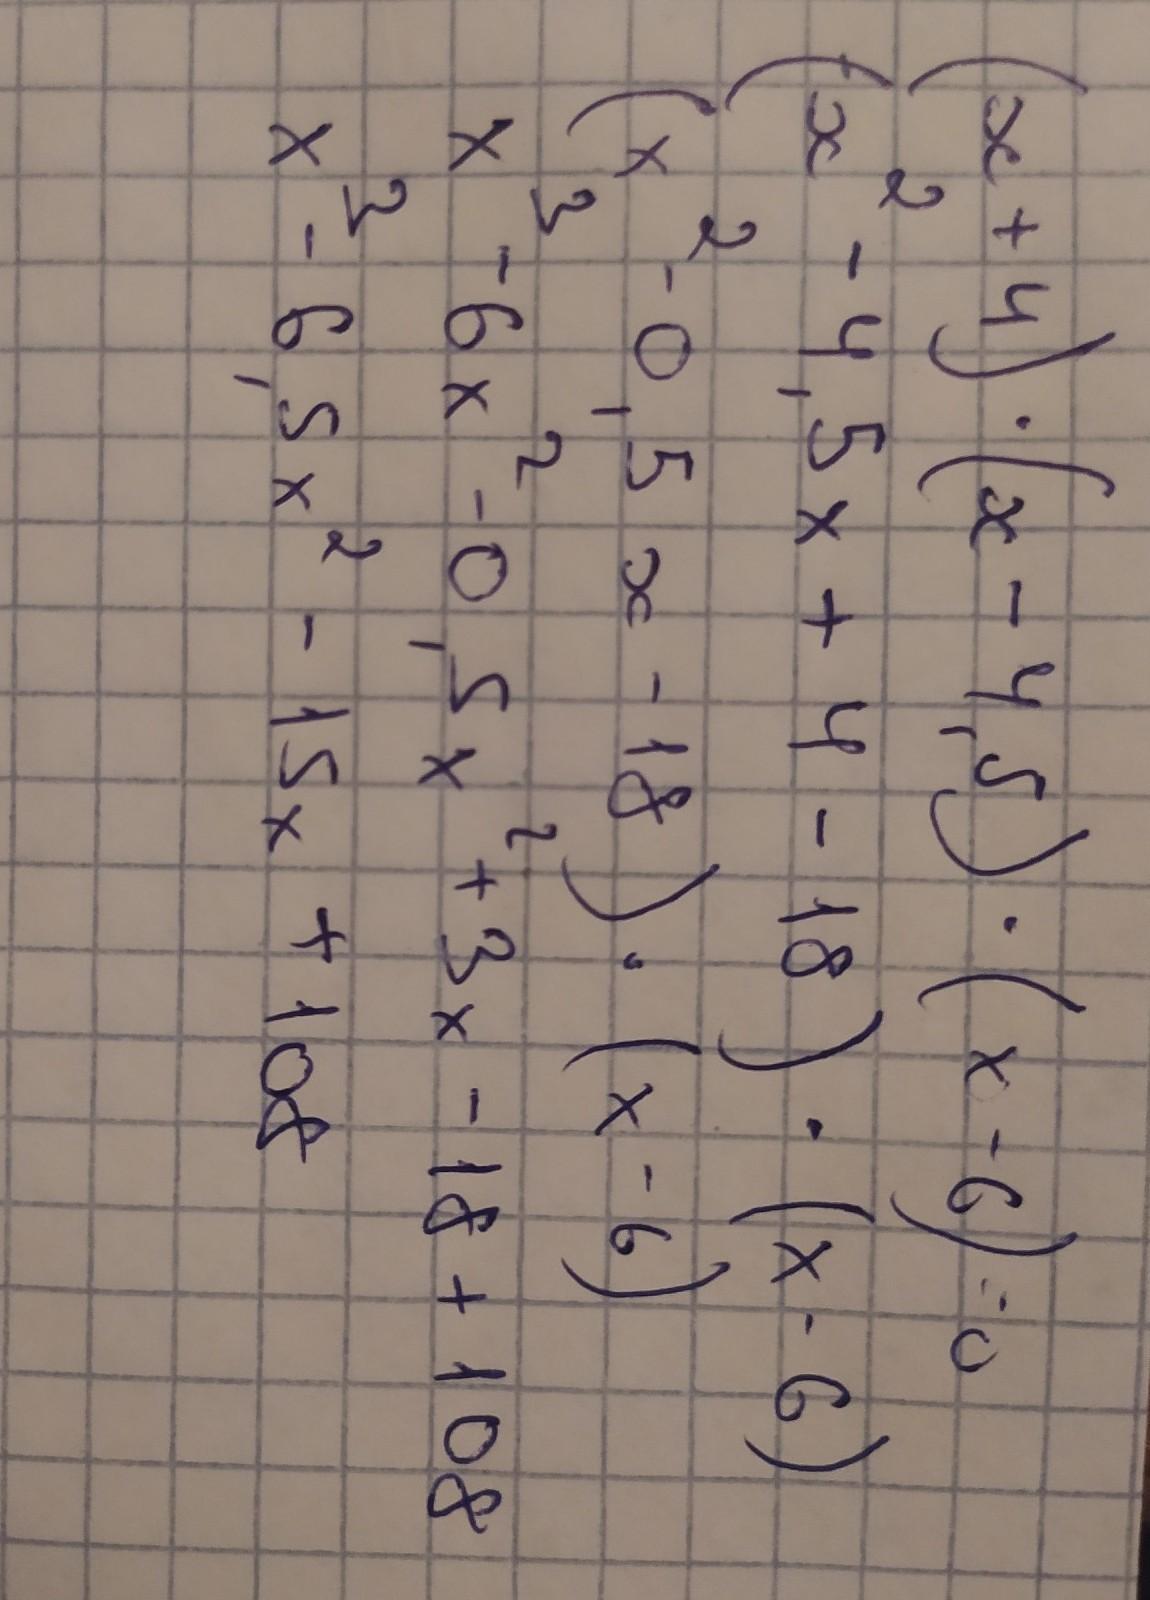 (x+4)·(x-4,5)·(x-6)=0
(x²-4,5x+4-18)·(x-6)
(x²-0,5x-18)·(x-6)
x³-6x²-0,5x²+3x-18+108
x³-6,5x²-15x+108